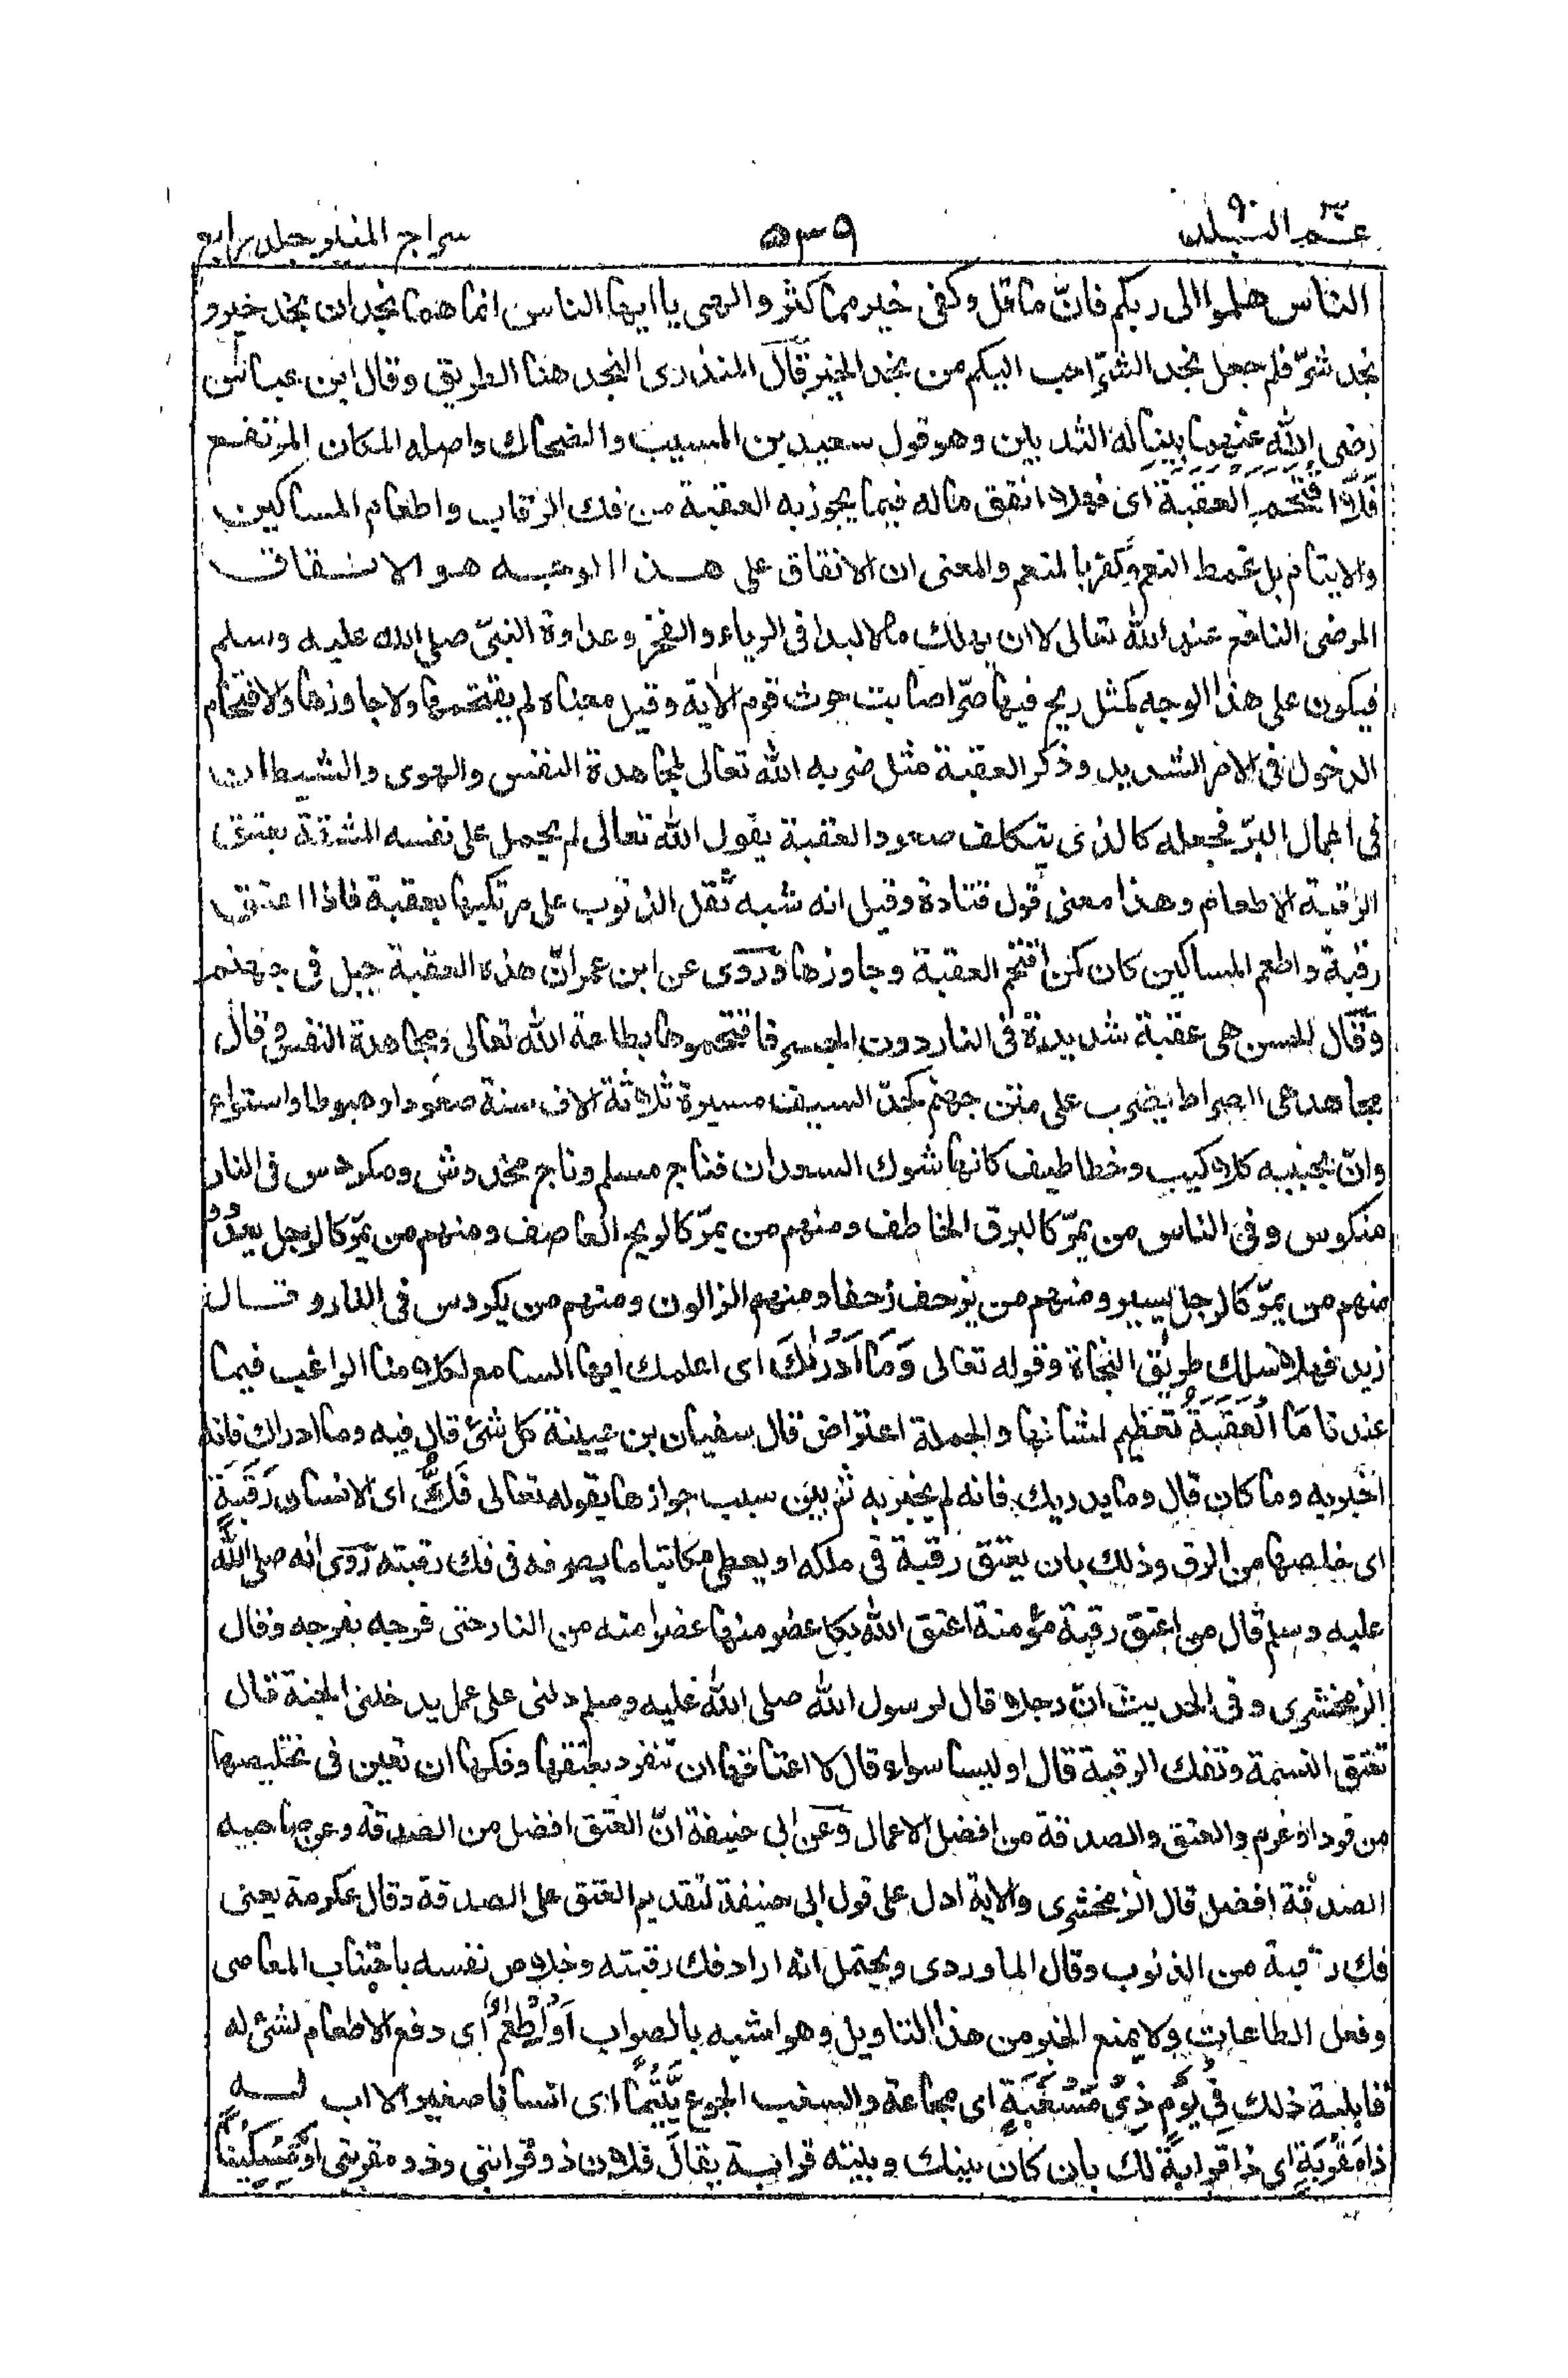 عمّ البلد ٥٣٩ سراج المنير جلد رابع
الناس هلموا الى ربكم فانّ ما قل وكفى خير مما كثر والهى يا ايها الناس انما هما نجدان نجد خير و
نجد شرّ فلم جعل نجد الشرّ احب اليكم من نجد الخير قال المنذرى النجد هنا الطريق وقال ابن عباس
رضى الله عنهما بينا له الثديين وهو قول سعيد بن المسيب والضحاك واصله المكان المرتفع
فَلَا اقْتَحَمَ الْعَقَبَةَ اى فهلا انفق ماله فيما يجوز به العقبة من فك الرقاب واطعام المساكين
والايتام بل غمط النعم وكفر بالمنعم والمعنى ان الانفاق على هذا الوجه هو الانفاق
المرضى النافع عند الله تعالى لا ان يهلك مالا لبدا فى الرياء والفخر وعداوة النبىّ صلى الله عليه وسلم
فيكون على هذا الوجه كمثل ريح فيها صرّ اصابت حرث قوم الاية وقيل معناه لم يقتحمها ولا جاوزها والاقتحام
الدخول فى الامر الشديد وذكر العقبة مثل ضربه الله تعالى لمجاهدة النفس والهوى والشيطان
فى اعمال البرّ فجعله كالذى يتكلف صعود العقبة يقول الله تعالى لم يحمل على نفسه المشقة بعتق
الرقبة الاطعام وهذا معنى قول قتادة وقيل انه شبه ثقل الذنوب على مرتكبها بعقبة فاذا اعتق
رقبة واطعم المساكين كان كمن اقتحم العقبة وجاوزها وروى عن ابن عمر انّ هذه العقبة جبل فى جهنم
وقال الحسن هى عقبة شديدة فى النار دون الجسر فاقتحموها بطاعة الله تعالى ومجاهدة النفس وقال
مجاهد هى الصراط يضرب على متن جهنم كحدّ السيف مسيرة ثلاثة الاف سنة صعودا وهبوطا واستواء
وانّ بجنبيه كلاليب وخطاطيف كانها شوك السعدان فناج مسلم وناج مخدوش ومكردس فى النار
منكوس وفى الناس من يمرّ كالبرق الخاطف ومنهم من يمرّ كالريح العاصف ومنهم من يمرّ كالرجل يعدو
منهم من يمرّ كالرجل يسير ومنهم من يزحف زحفا ومنهم الزالون ومنهم من يكردس فى النار وقال
زيد فهلا سلك طريق النجاة وقوله تعالى وَمَا اَدْرٰىكَ اى اعلمك ايها السامع لكلامنا الراغب فيما
عندنا مَا الْعَقَبَةُ تعظيم لشانها والجملة اعتراض قال سفيان بن عيينة كل شئ قال فيه وما ادراك فانه
اخبر به وما كان قال وما يدريك فانه لم يخبر به ثم بين سبب جوازها بقوله تعالى فَكَّ اى الانسان رَقَبَةً
اى خلصها من الرق وذلك بان يعتق رقبة فى ملكه او يعطى مكاتبا ما يصرفه فى فك رقبته روى انه صلى الله
عليه وسلم قال من اعتق رقبة مؤمنة اعتق الله بكل عضو منها عضوا منه من النار حتى فرجه بفرجه وقال
الزمخشرى وفى الحديث انّ رجلا قال لرسول الله صلى الله عليه وسلم دلنى على عمل يدخلنى الجنة قال
تعتق النسمة وتفك الرقبة قال اوليسا سواء قال لا اعتاقها ان تنفرد بعتقها وفكها ان تعين فى تخليصها
من قود او غرم والعتق والصدقة من افضل الاعمال وعن ابى حنيفة انّ العتق افضل من الصدقة وعن صاحبيه
الصدقة افضل قال الزمخشرى والاية ادل على قول ابى حنيفة لتقديم العتق على الصدقة وقال عكرمة يعنى
فك رقبة من الذنوب وقال الماوردى ويحتمل انه اراد فك رقبته وخلاص نفسه باجتناب المعاصى
وفعل الطاعات ولا يمنع الخبر من هذا التاويل وهو اشبه بالصواب اَوْ اَطْعَمَ اى دفع الاطعام لشئ له
قابلية ذلك فِىْ يَوْمٍ ذِىْ مَسْغَبَةٍ اى مجاعة والسغب الجوع يَتِيْمًا اى انسانا صغيرا لا اب له
ذَا مَقْرَبَةٍ اى ذا قرابة لك بان كان بينك وبينه قرابة يقال فلان ذو قرابتى وذو مقربتى اَوْ مِسْكِيْنًا